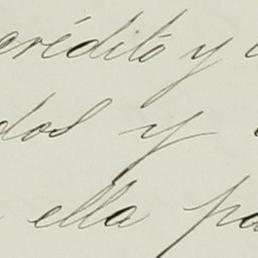 crédito y
dos y
ella pa